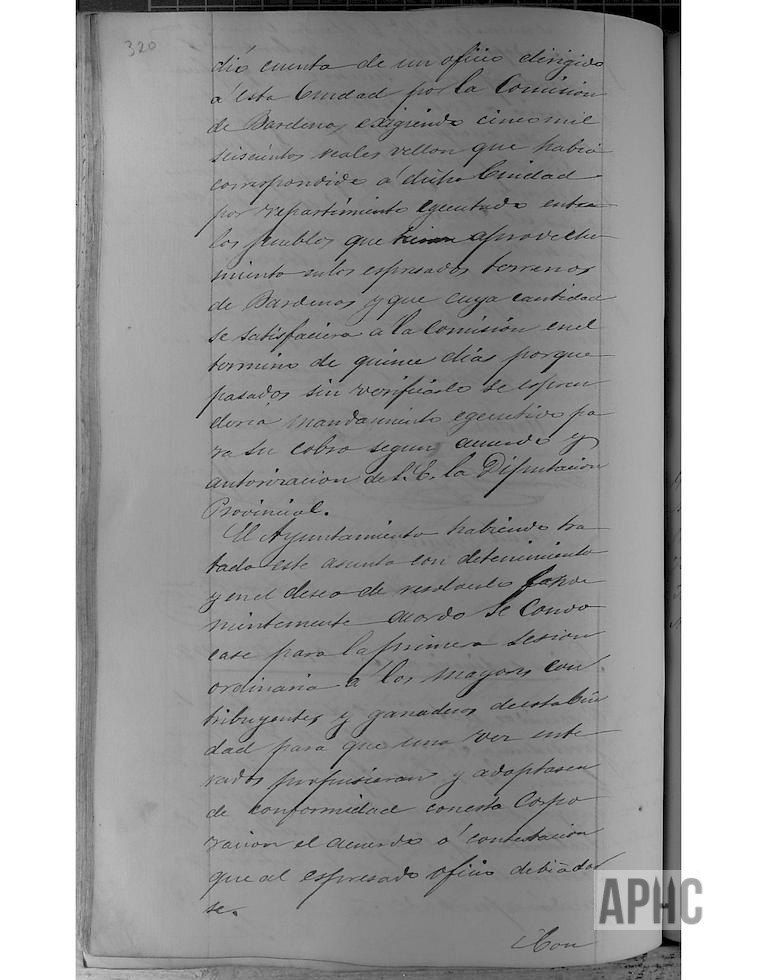 320
dió cuenta de un oficio dirigido
á esta Ciudad por la Comision
de Bardenas exigiendo cinco mil
seiscientos reales vellon que habia
correspondido á dicha Ciudad
por repartimiento egecutado entre
los pueblos que tienen aprovecha
miento en los espresados terrenos
de Bardenas y que cuya cantidad
se satisfaciera á la Comisión en el
termino de quince dias porque
pasados sin verificarlo se espen
deria mandamiento egecutivo pa
ra su cobro segun acuerdo y
autorizacion de S. E. la Diputacion
Provincial.
El Ayuntamiento habiendo tra
tado este asunto con detenimiento
y en el deseo de resolverlo
mintemente acordo se convo
case para la primera sesion
ordinaria á los mayores con
tribuyentes y ganaderos de esta Ciu
dad para que una vez ente
rados propusieran y adoptasen
de conformidad con esta Corpo
racion el acuerdo ó contestacion
que al espresado oficio debia dar
se.
Con
APHC